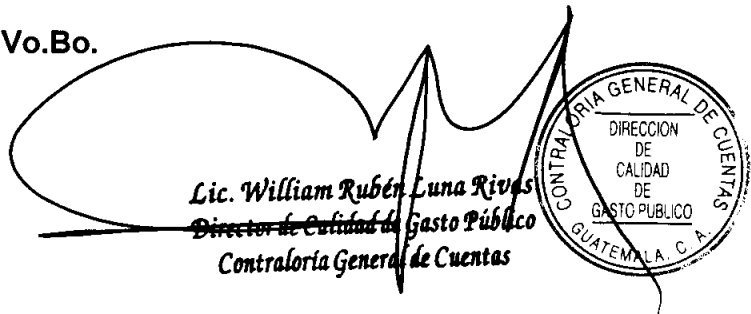 Vo.Bo.
Lic. William Rubén Luna Rivas
Director de Calidad de Gasto Público
Contraloría General de Cuentas
CONTRALORIA GENERAL DE CUENTAS
DIRECCION
DE
CALIDAD
DE
GASTO PUBLICO
GUATEMALA, C. A.